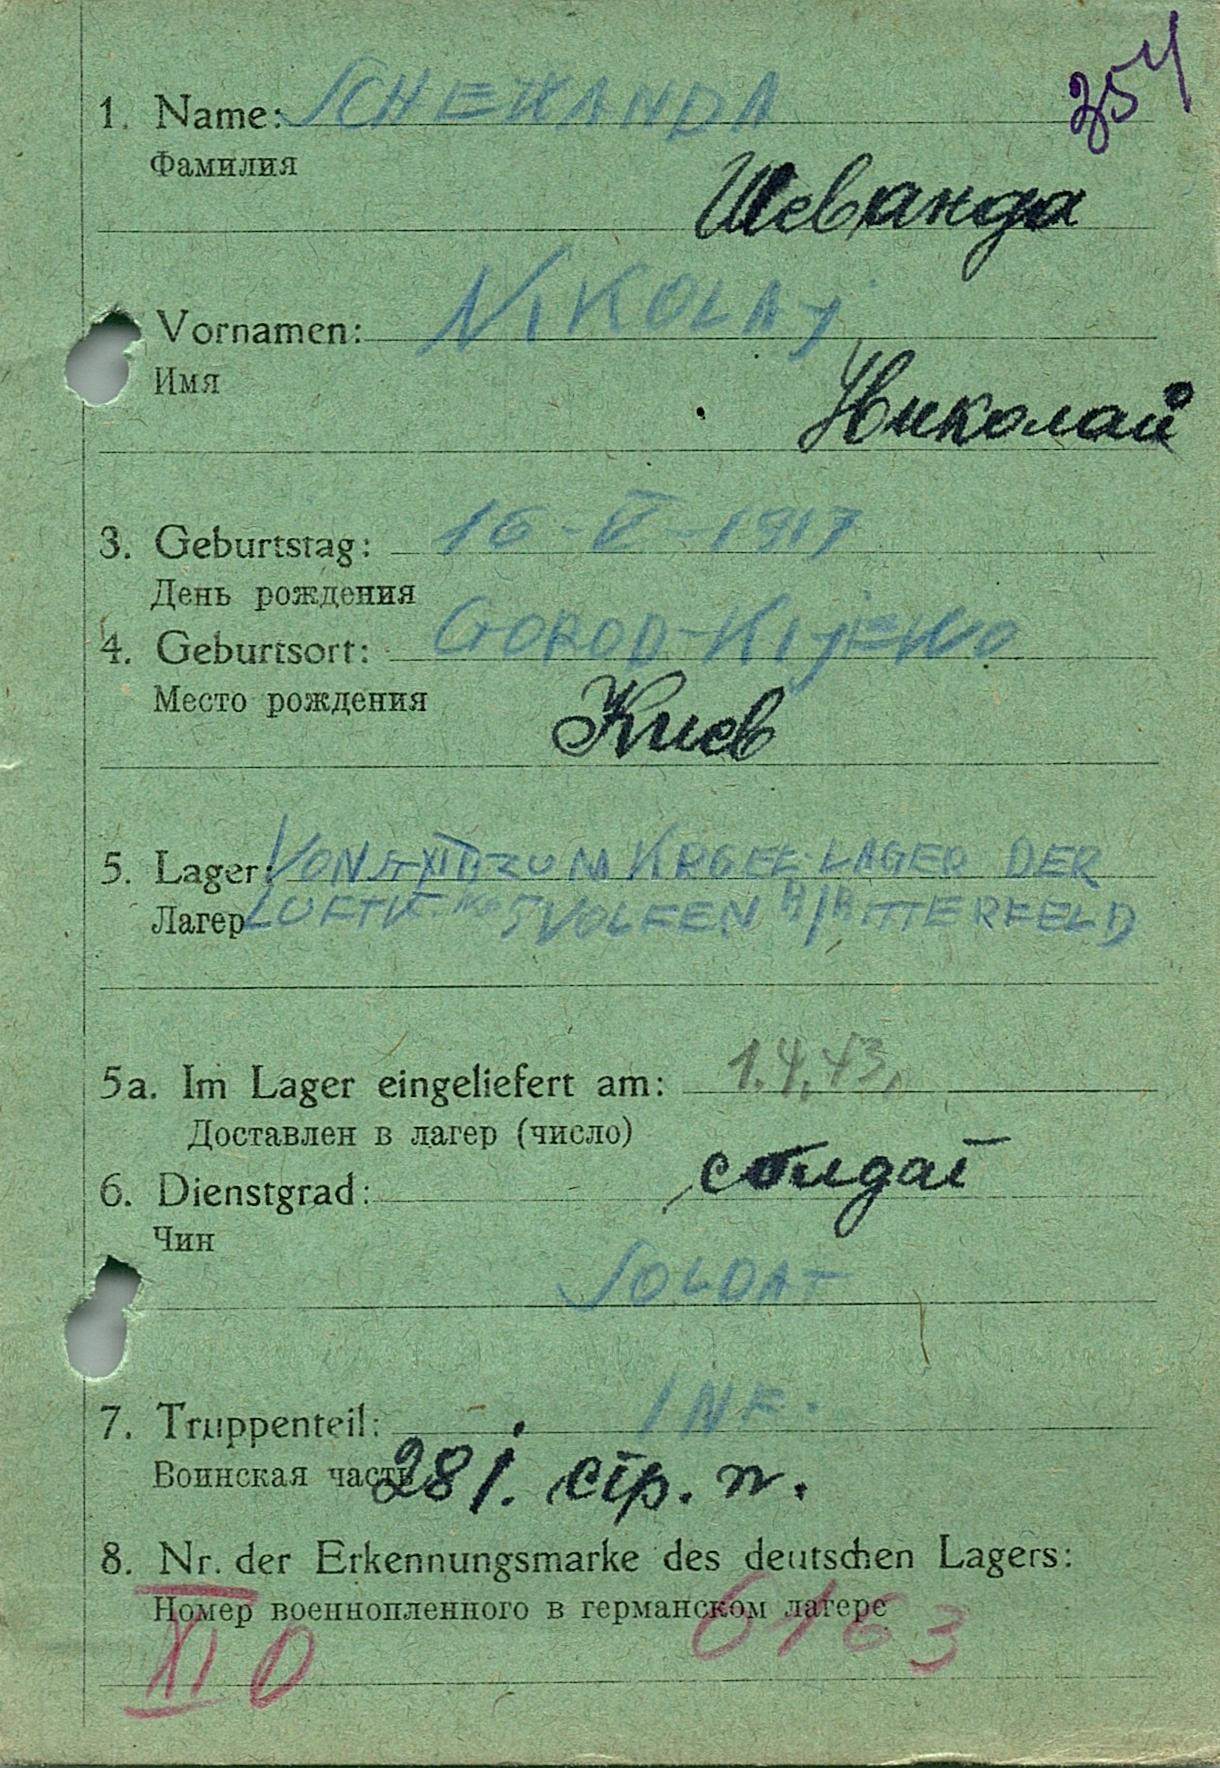 254
1. Name: SCHEWANDA
Фамилия
Шеванда
Vornamen: NIKOLAj
Имя
Николай
3. Geburtstag: 16-V-1917
День рождения
4. Geburtsort: GOROD-KIjEWO
Место рождения
Киев
5. Lager: VON ZUM KRGEF-LAGER DER
Лагер WOLFEN B/BITTERFELD
5a. Im Lager eingeliefert am: 1.4.43.
Доставлен в лагер (число)
солдат
6. Dienstgrad:
Чин
SOLDAT
7. Truppenteil: INF.
Воинская часть 281. стр. п.
8. Nr. der Erkennungsmarke des deutschen Lagers:
Номер военнопленного в германском лагере
XI D 6163